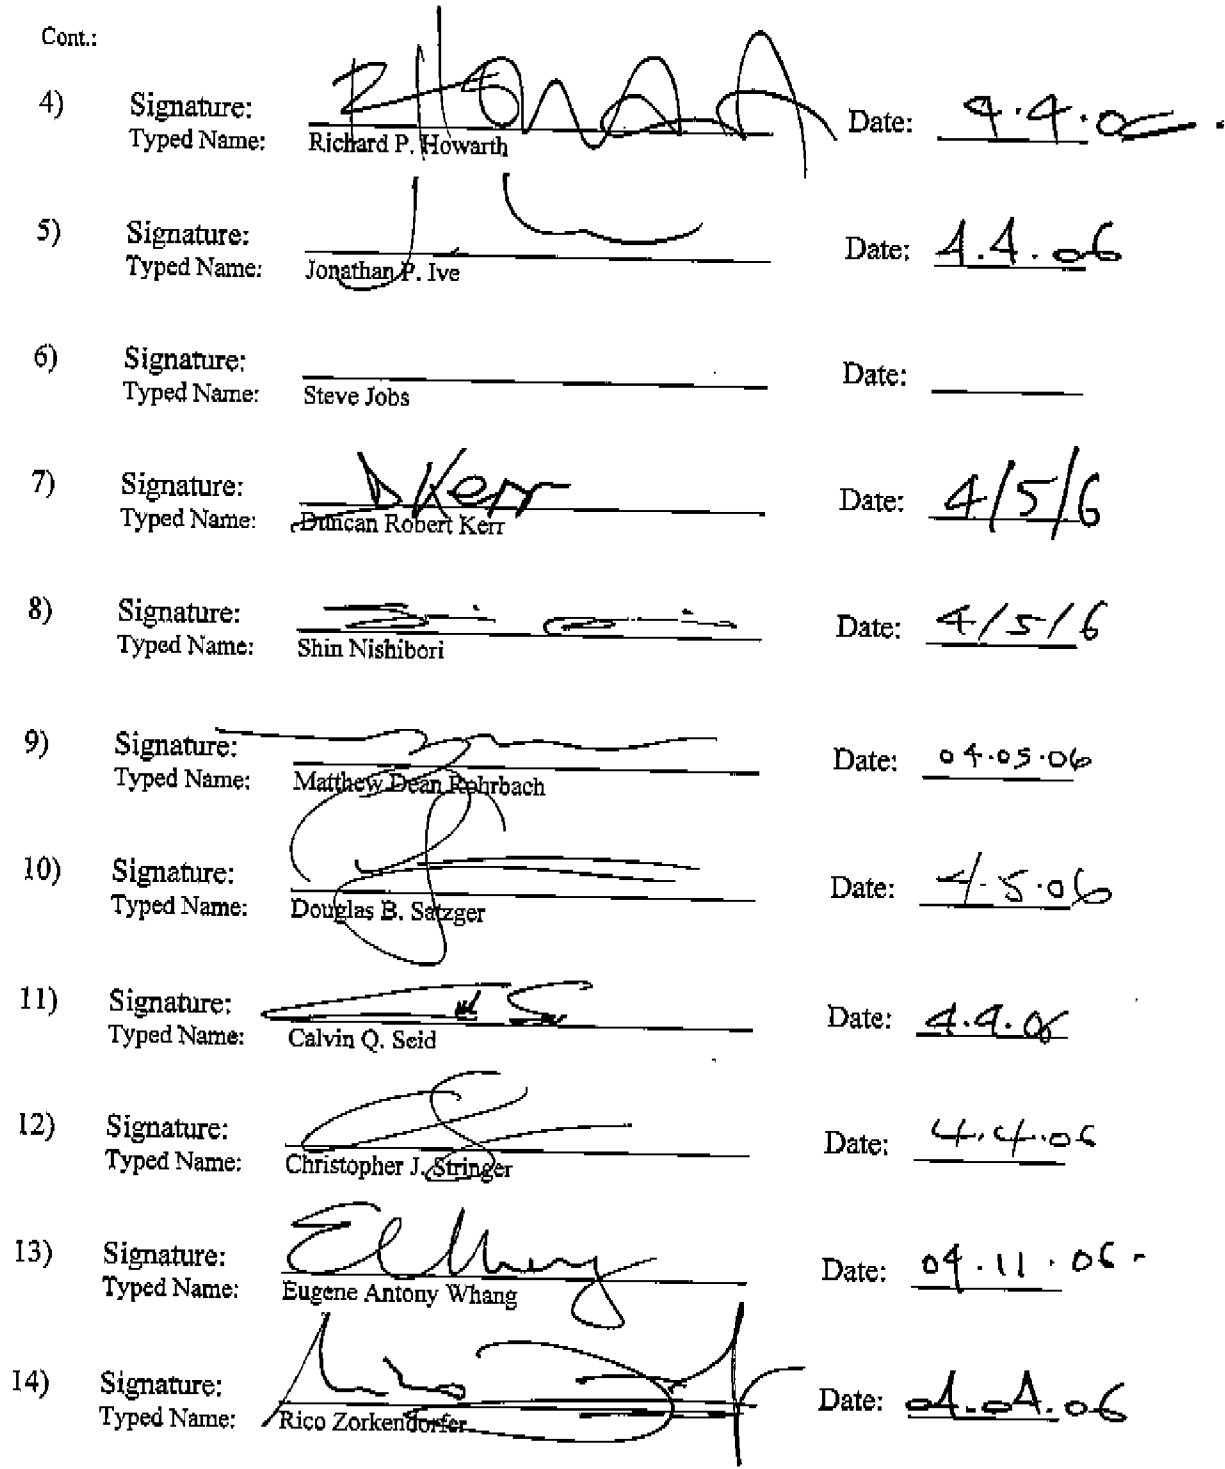 Cont.:
4) Signature: Date: 4.4.06
Typed Name: Richard P. Howarth
5) Signature: Date: 4.4.06
Typed Name: Jonathan P. Ive
6) Signature: Date:
Typed Name: Steve Jobs
7) Signature: DKerr Date: 4/5/6
Typed Name: Duncan Robert Kerr
8) Signature: Date: 4/5/6
Typed Name: Shin Nishibori
9) Signature: Date: 04.05.06
Typed Name: Matthew Dean Rohrbach
10) Signature: Date: 4.5.06
Typed Name: Douglas B. Satzger
11) Signature: Date: 4.4.06
Typed Name: Calvin Q. Seid
12) Signature: Date: 4.4.06
Typed Name: Christopher J. Stringer
13) Signature: Date: 04.11.06
Typed Name: Eugene Antony Whang
14) Signature: Date: 04.04.06
Typed Name: Rico Zorkendorfer